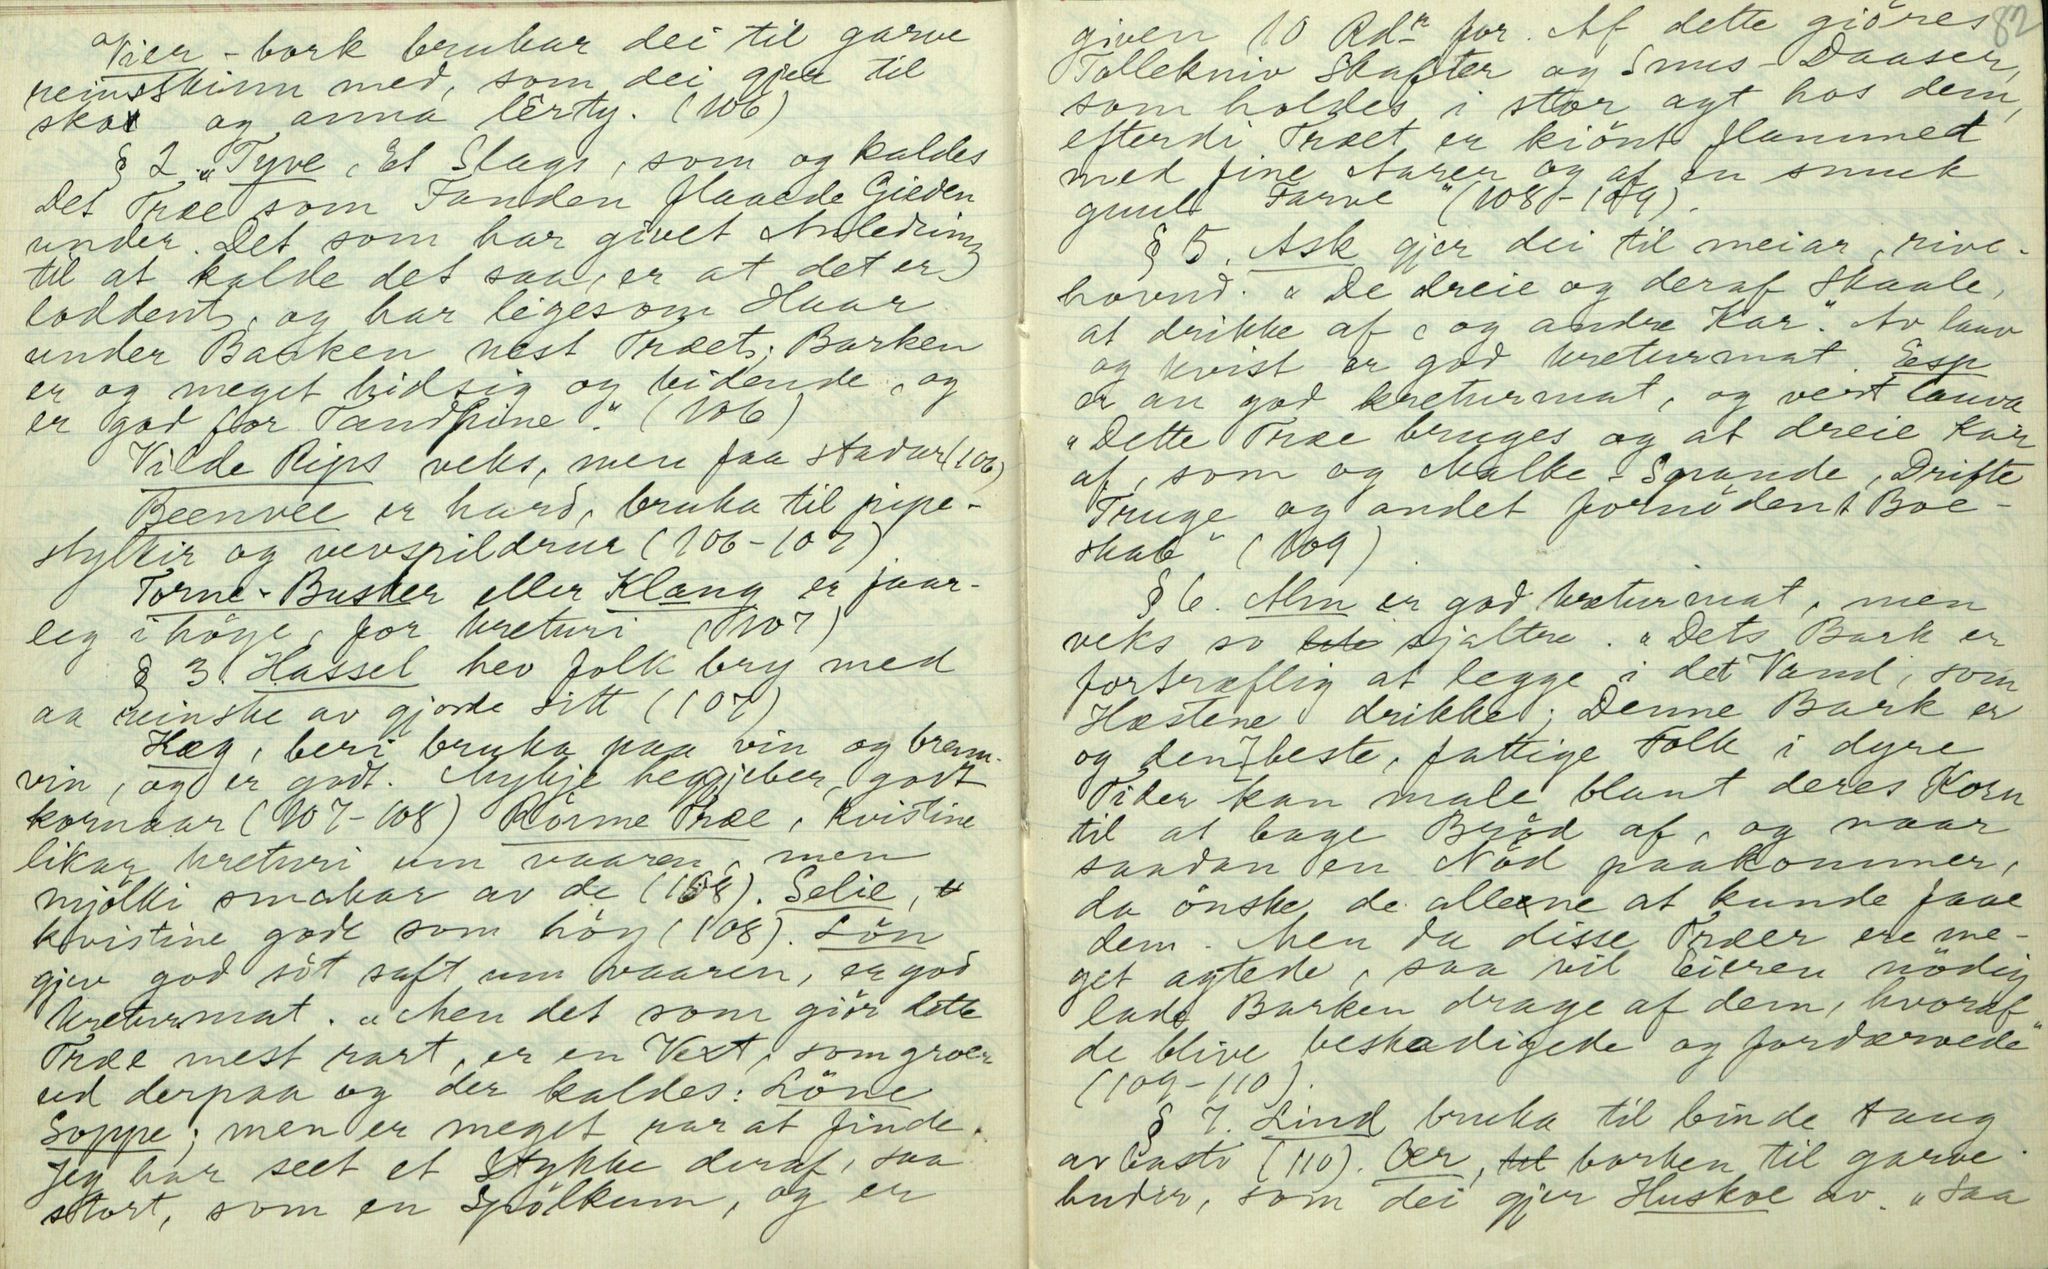 Vier-bork brukar dei til garve
reinsskinn med, som dei gjer til
skor og anna lêrty. (106)
§ 2. „Tyve, Et Slags, som og kaldes
Det Træ som Fanden flaaede Gieden
under. Det som har givet Anledning
til at kalde det saa, er at det er
loddent, og har ligesom Haar
under Barken nest Træet; Barken
er og meget hidsig og bidende, og
er god for Tandpine". (106)
Vilde Rips veks, men faa stadar (106)
Beenvee er hard, bruka til pipe-
stykkir og vevspildrur (106-107)
Torne-Busker eller Klang er faar-
leg i höye, for kreturi (107)
§ 3. Hassel hev folk bry med
aa reinske av gjorde sitt (107)
Hæg, beri bruka paa vin og brenn-
vin, og er godt. Mykje heggjeber, godt
kornaar (107-108) Rönne Træe, kvistine
likar kreturi um vaaren, men
mjölki smakar av de (108). Selie,
kvistine gode som höy (108). Lön
gjev god söt saft um vaaren, er god
kreturmat. „Men det som giör dette
Træe mest rart, er en Vext, som groer
ud derpaa og der kaldes: Löne
Soppe; men er meget rar at finde.
Jeg har seet et Stykke deraf, saa
stort, som en Spölkum, og er
82
given 10 Rdr for. Af dette giöres
Tollekniv Skafter og Snus-Daaser,
som holdes i stor agt hos dem,
efterdi Træet er kiönt flammed
med fine Aarer og af en smuk
guul Farve" (108-109).
§ 5. Ask gjer dei til meiar, rive-
hovud. „De dreie og deraf Skaale,
at drikke af, og andre Kar". Av lauv
og kvist er god kreturmat. Esp
er an god kreturmat, og vert lauva
„Dette Træe bruges og at dreie Kar
af, som og Malke-Spande, Drifte
Truge og andet fornödent Boe-
skab" (109)
§ 6. Alm er god kreturmat, men
veks so sjaltne. „Dets Bark er
fortræflig at legge i det Vand, som
Hæstene drikke; Denne Bark er
og den beste, fattige Folk i dyre
Tider kan male blant deres Korn
til at bage Bröd af, og naar
saadan en Nöd paakommer,
da önske de allene at kunde faae
dem. Men da disse Træer ere me-
get agtede, saa vil Eieren nödig
lade Barken drage af dem, hvoraf
de blive beskadigede og fordærvede"
(109-110).
§ 7. Lind bruka til binde taug
av basti (110). Oer, borken til garve
huder, som dei gjer Huskoe av. „Saa